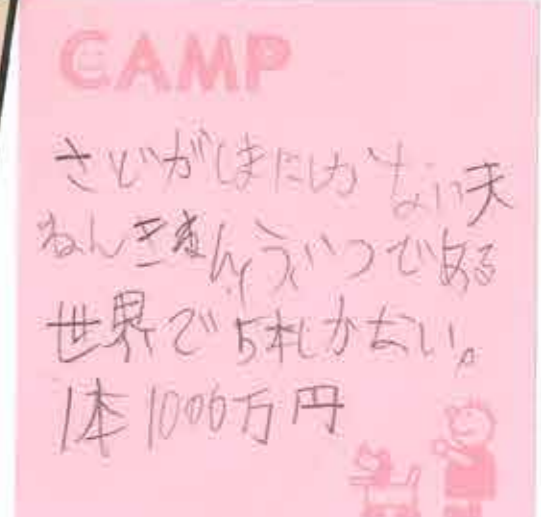 CAMP
さどがしまにしかない天
ねんきねんぶつである
世界で5本しかない。
1本1000万円